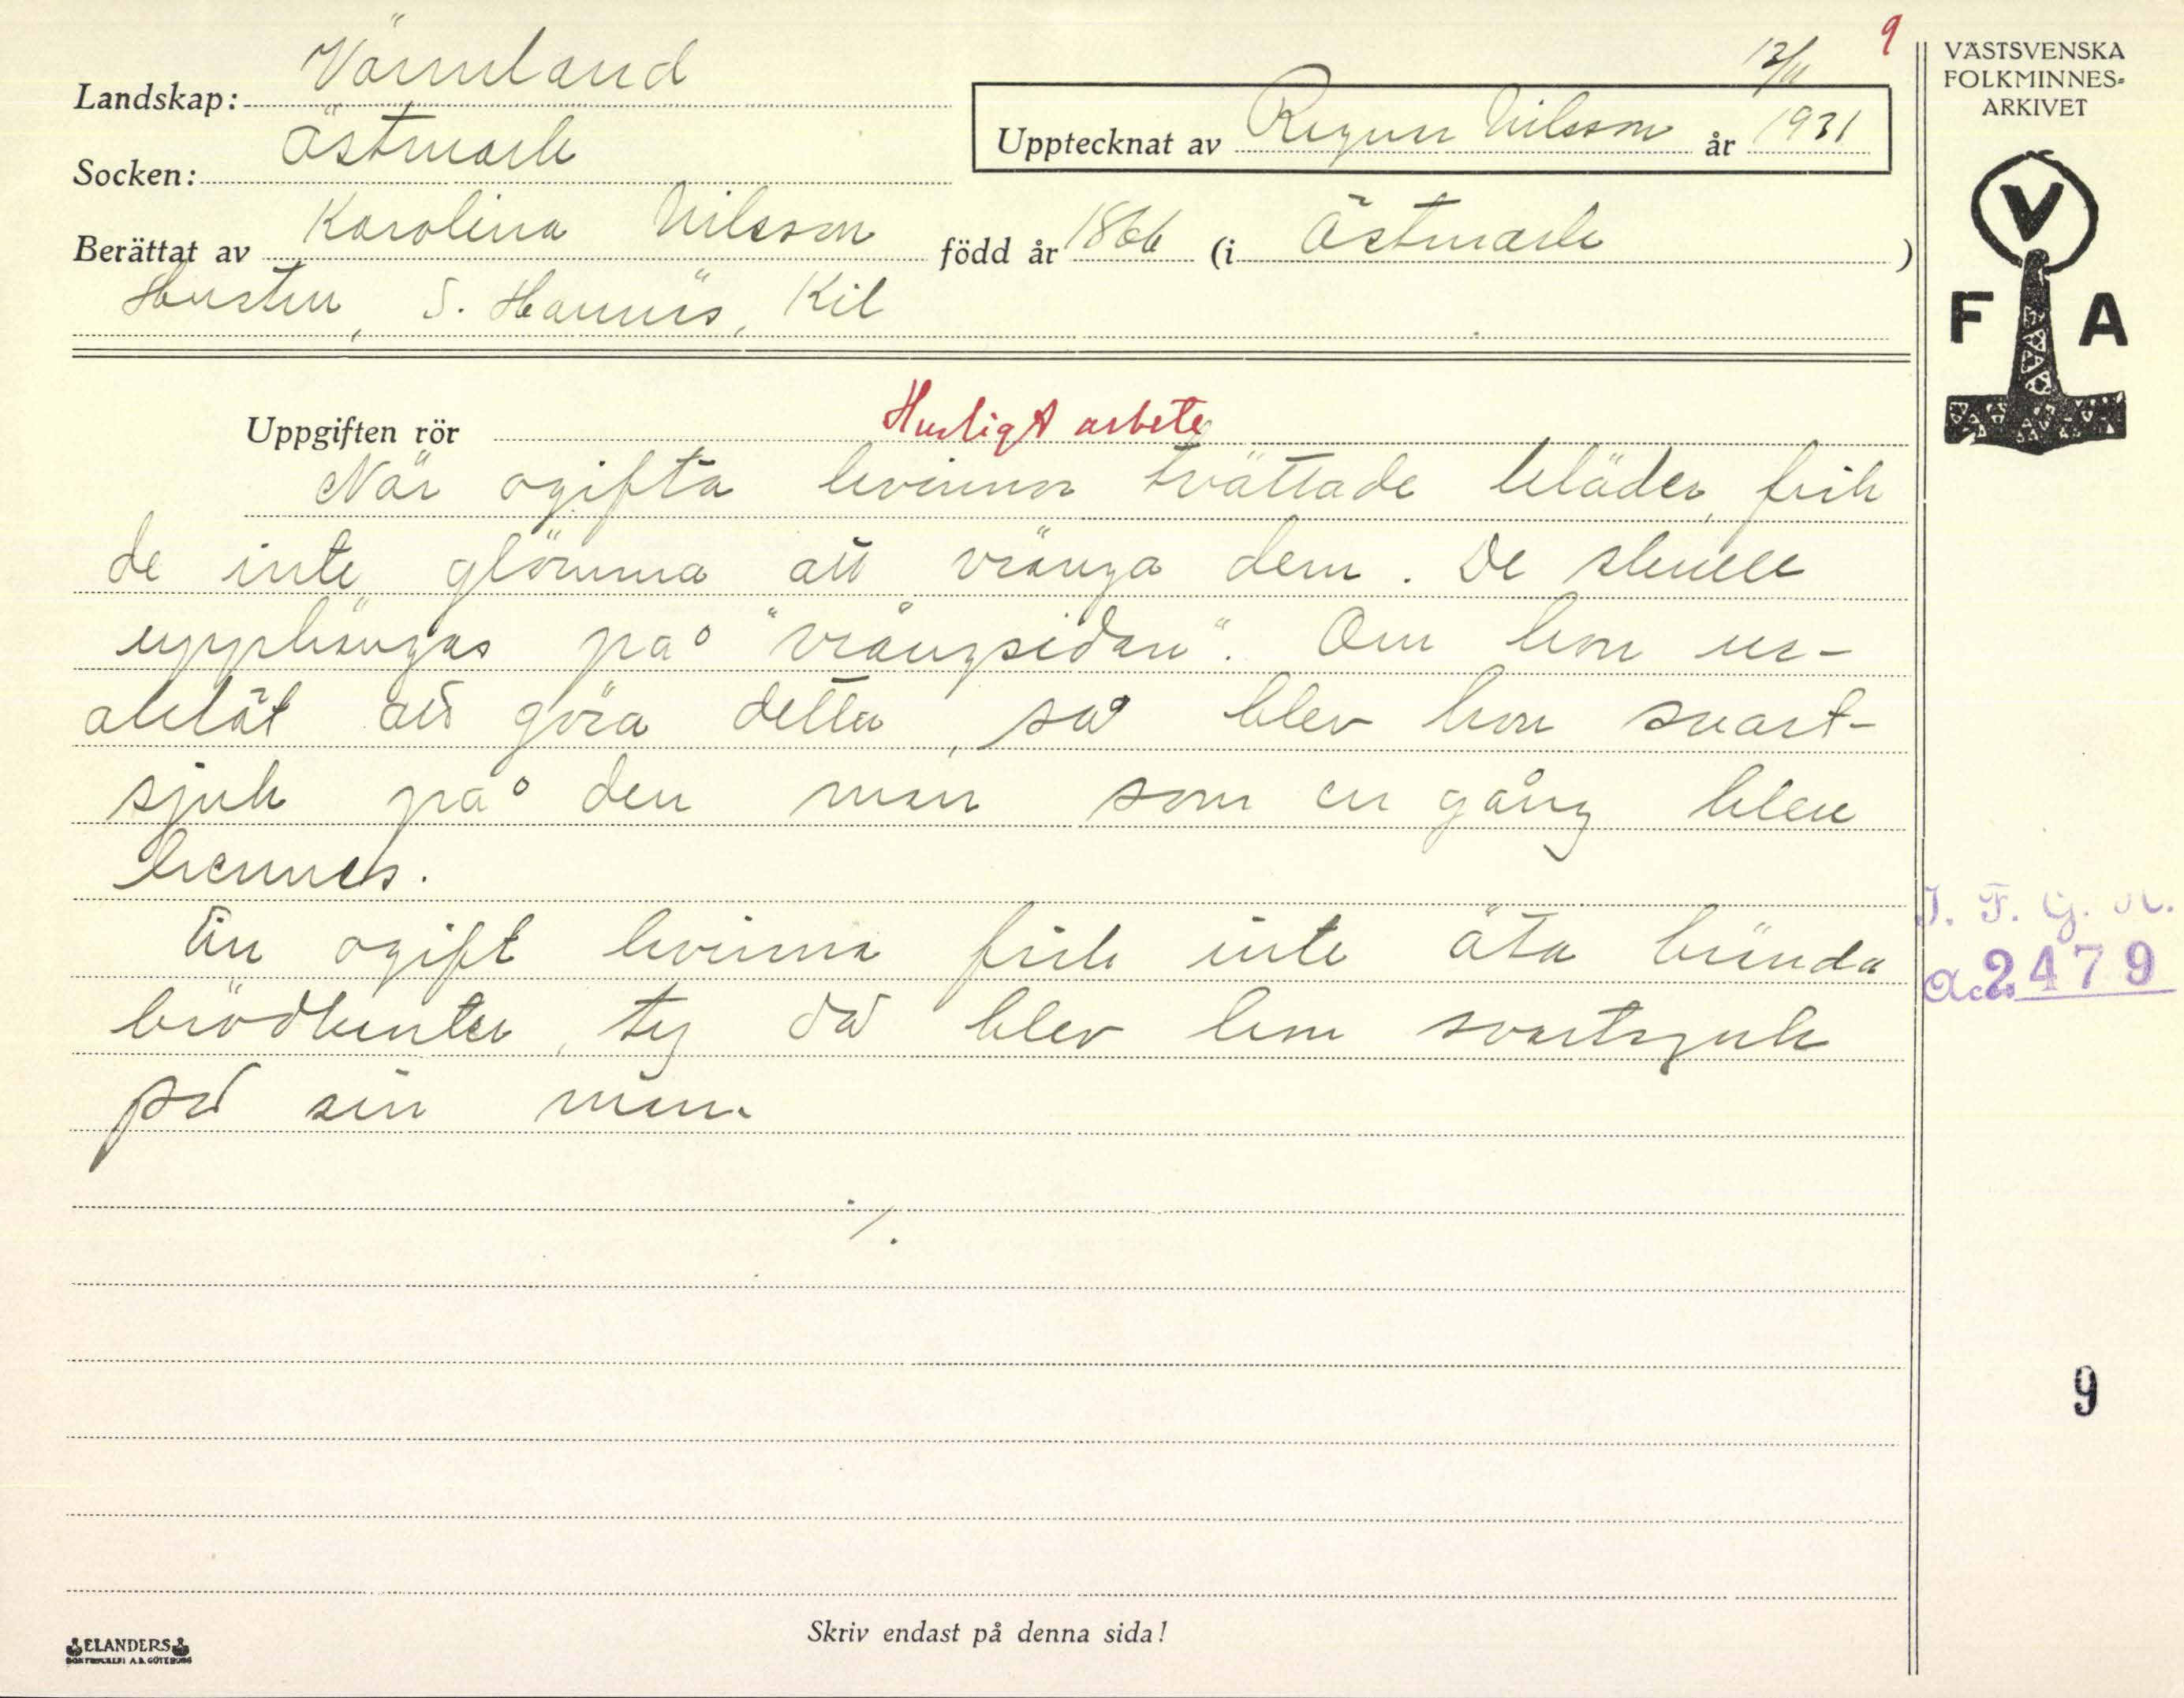 12/11 9
VÄSTSVENSKA
FOLKMINNES-
ARKIVET
Landskap: Värmland
Upptecknat av Nilsson år 1931
Socken: Östmark
Berättat av Karolina Nilsson född år 1866 (i Östmark )
S. Kil
V
F A
Uppgiften rör Husligt arbete
När ogifta kvinnor tvättade kläder, fick
de inte glömma att vränga dem. De skulle
upphängas på "vrångsidan". Om hon un-
derlät att göra detta, så blev hon svart-
sjuk på den man som en gång blev
hennes.
En ogift kvinna fick inte äta brända
brödkanter, ty då blev hon svartsjuk
på sin man.
./.
I. F. G. H.
Acc. 2479
9
Skriv endast på denna sida!
ELANDERS
BOKTRYCKERI A.B. GÖTEBORG